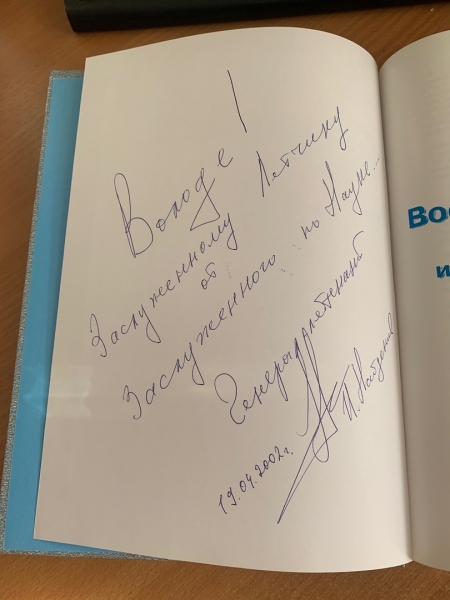 Володе!
Заслуженному Лётчику
от
Заслуженного по Науке...
Генерал-лейтенант
П. Найденов
19.04.2002г.
Во
и